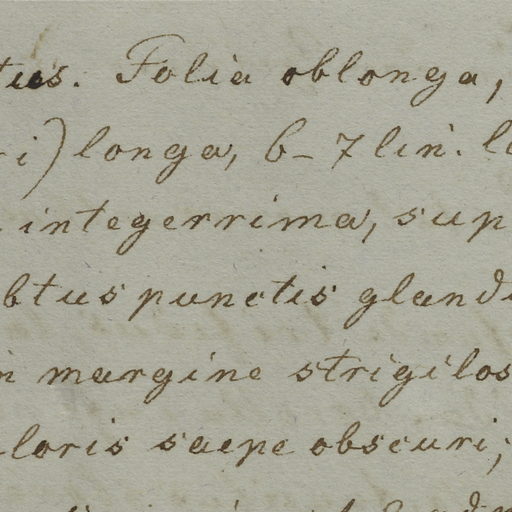 tus. Folia oblonga,
-i) longa, 6-7 lin. l
integerrima, sup
btus punctis gland
n margine strigilos
loris saepe obscuri;